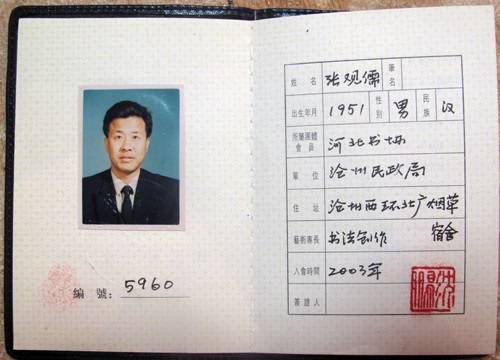 编 號: 5960
姓 名 张观儒 筆名
出生年月 1951 性别 男 民族 汉
所屬團體會員 河北书协
單 位 沧州民政局
住 址 沧州西环北广烟草宿舍
藝術專長 书法创作
入會時間 2003年
簽證人